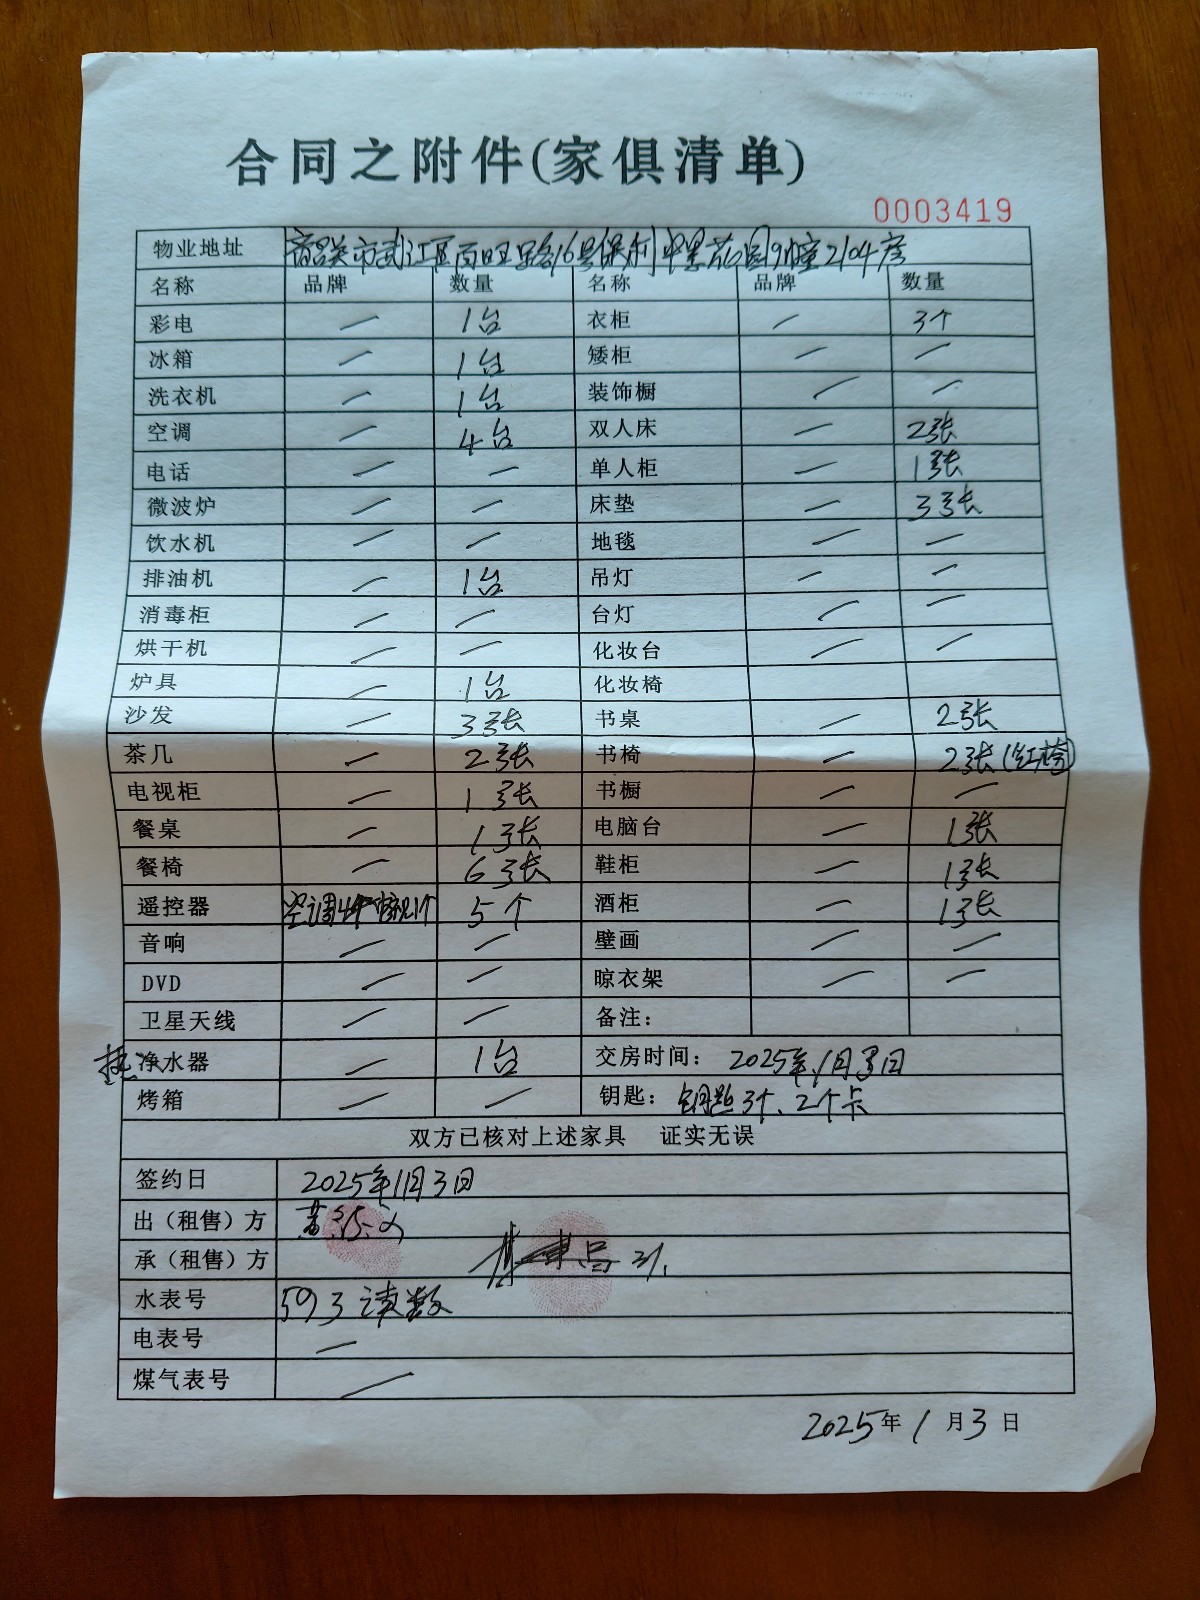 合同之附件(家俱清单)
0003419
物业地址 韶关市武江区百旺路16号保利中景花园9幢2104房
名称 品牌 数量 名称 品牌 数量
彩电 — 1台 衣柜 — 3个
冰箱 — 1台 矮柜 — —
洗衣机 — 1台 装饰橱 — —
空调 — 4台 双人床 — 2张
电话 — — 单人柜 — 1张
微波炉 — — 床垫 — 3张
饮水机 — — 地毯 — —
排油机 — 1台 吊灯 — —
消毒柜 — — 台灯 — —
烘干机 — — 化妆台 — —
炉具 — 1台 化妆椅
沙发 — 3张 书桌 — 2张
茶几 — 2张 书椅 — 2张(红椅)
电视柜 — 1张 书橱 — —
餐桌 — 1张 电脑台 — 1张
餐椅 — 6张 鞋柜 — 1张
遥控器 空调4个电视1个 5个 酒柜 — 1张
音响 — — 壁画 — —
DVD — — 晾衣架 — —
卫星天线 — — 备注:
热净水器 — 1台 交房时间: 2025年1月3日
烤箱 — — 钥匙: 钥匙3个、2个卡
双方已核对上述家具 证实无误
签约日 2025年1月3日
出(租售)方
承(租售)方
水表号 593读数
电表号 —
煤气表号 —
2025年1月3日